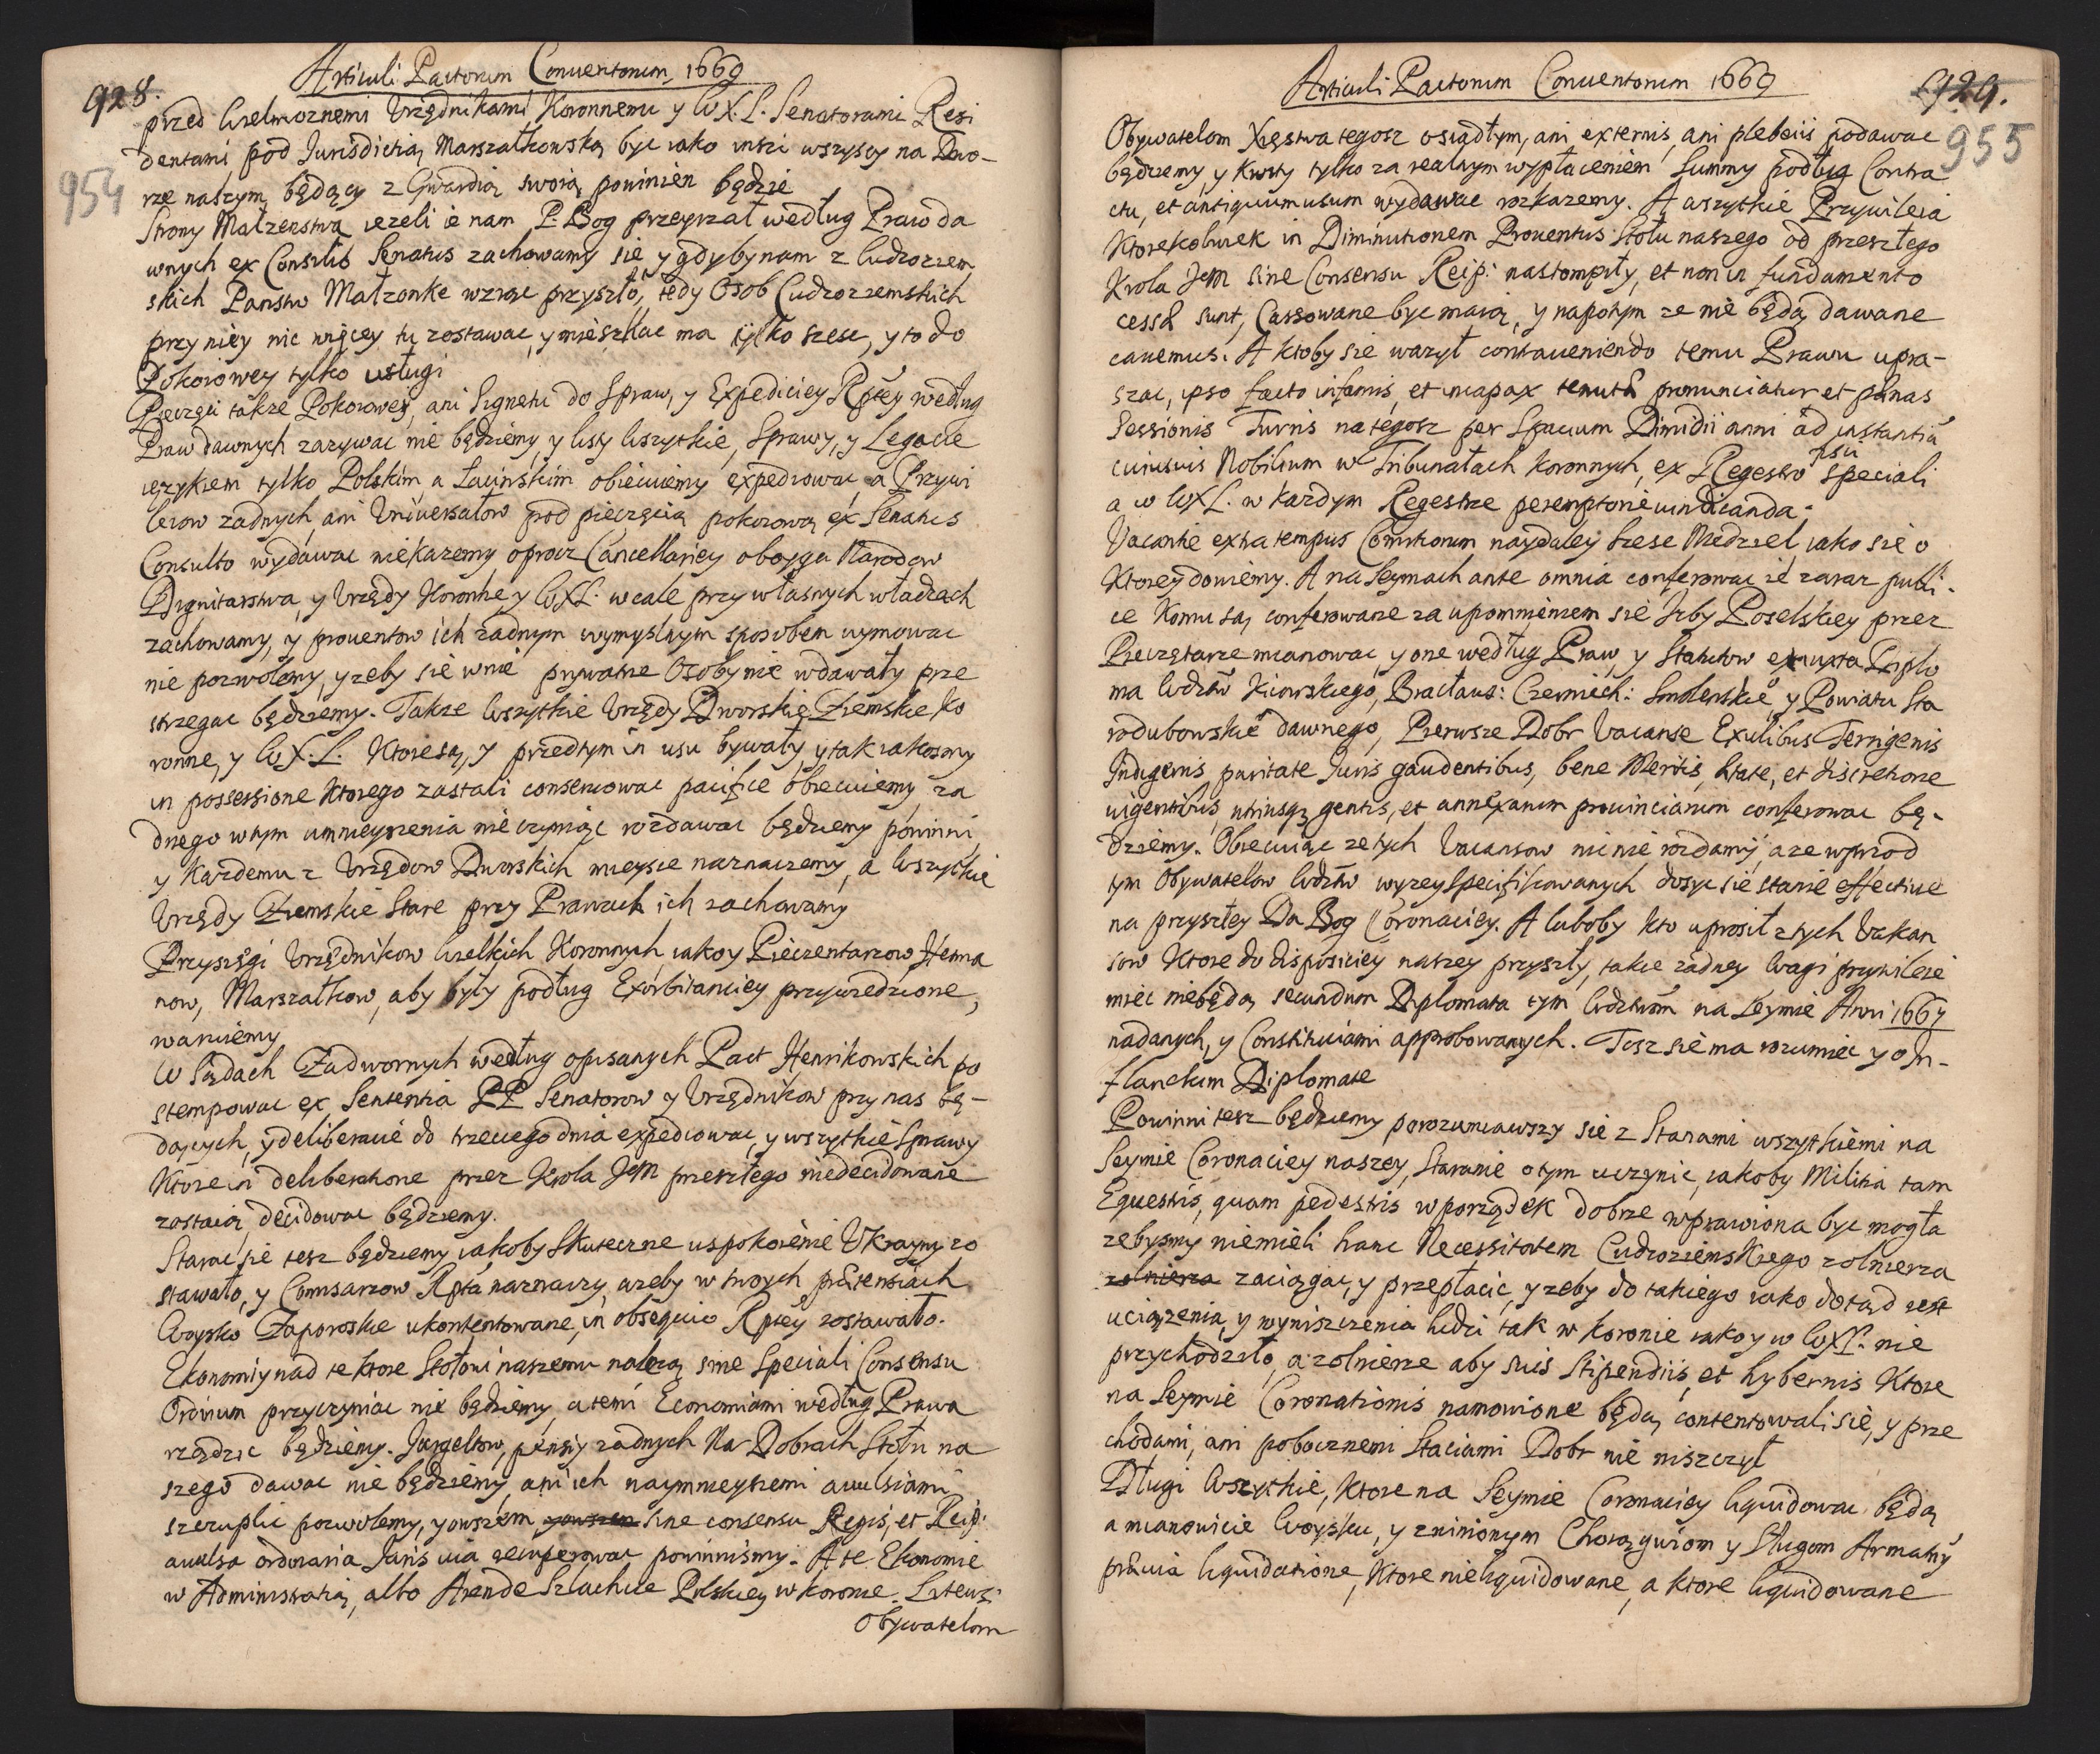 928.
Articuli Pactorum Conuentorum 1669
954
przed Wielmoznemi Urzędnikami Koronnemi y W.X.L. Senatorami Resi
dentami, pod Jurisdictią Marszałkowską byc iako inszi wszyscy na Dwo-
rze naszym będący z Gwardią swoią powinien będzie
Strony Małzenstwa iezeli ie nam P. Bog przeyrzał według Praw da
wnych ex Consilio Senatus zachowamy się y gdyby nam z Cudzoziem
skich Panstw Małzonke wziąc przyszło, tedy Osob Cudzoziemskich
przy niey nic więcey tu zostawac, y mieszkac ma tylko szesc, y to do
Pokoiowey tylko usługi
Pieczęci takze Pokoiowey, ani Sygnetu do Spraw, y Expediciey Rptey według
Praw dawnych zazywac nie będziemy, y listy wszytkie, Sprawy, y Legacie
ięzykiem tylko Polskim a Łacińskim obiecuiemy expediowac, a Przywi
leiow zadnych, ani Uniwersałow pod pieczęcią pokoiową ex Senatus
Consulto wydawac niekazemy oprocz Cancellariey oboyga Narodow
Dignitarstwa, y Urzędy Koronne, y WXL. wcale przy własnych władzach
zachowamy, y prouentow ich zadnym wymyslnym sposobem uymowac
nie pozwolemy, y zeby się w nie priwatne Osoby nie wdawały prze
strzegac będziemy. Takze wszytkie Urzędy Dworskie Ziemskie Ko
ronne, y W.X.L. Ktore są, y przedtym in usu bywały, y tak iakosmy
in possessione ktorego zastali conserwowac pacifice obiecuiemy, za
dnego w tym umnieyszenia nie czyniąc rozdawac będziemy powinni,
y Kazdemu z Urzędow Dworskich mieysce naznaczemy, a wszytkie
Urzędy Ziemskie Stare przy Prawach ich zachowamy
Przysięgi Urzędnikow wszelkich Koronnych, iako y Pieczentarzow, Hetma
now, Marszałkow, aby były podług Exorbitanciey przywiedzione,
waruiemy
W Sądach Zadwornych według opisanych Pact Henrikowskich po
stempowac ex Sententia PP Senatorow y Urzędnikow przy nas bę-
dących, y deliberacie do trzeciego dnia expediowac, y wszytkie Sprawy
Ktore in deliberatione przez Krola Jem przeszłego niedecidowane
zostaią, decidowac będziemy.
Starac się tesz będziemy iakoby Skuteczne uspokoienie Ukrainy zo
stawało, y Comisarzow Rpta naznaczy, azeby w swoych praetensiach
Woysko Zaporoskie ukontentowane, in obsequio Rptey zostawało.
Ekonomiy nad te ktore Stołowi naszemu nalezą sine Speciali Consensu
Ordinum przyczyniac nie będziemy, a temi Economiami według Prawa
rządzic będziemy. Jurgeltow, pensiy zadnych Na Dobrach Stołu na
szego dawac nie będziemy, ani ich naymnieyszemi auulsiami
szczuplic pozwolemy, y owszem y owszem Sine consensu Regis, et Reip.
auulsa ordinaria Juris uia recuperowac powinnismy. A te Ekonomie
w Administratią, albo Arende Szlachcie Polskiey w Koronie. Litews:
Obywatelom
Articuli Pactorum Conuentorum 1669
929.
955
Obywatelom Xięstwa tegosz osiadłym, ani externis, ani plebeiis podawac
będziemy, y Kwity tylko za realnym wypłaceniem Summy podług Contra
ctu, et antiquum usum wydawac rozkazemy. A wszytkie Przywileia
Ktorekolwiek in Diminutionem Prouentus Stołu naszego od przeszłego
Krola Jem sine Consensu Reip: nastompiły, et non in fundamento
cessae sunt, Cassowane byc maią, y napotym ze nie będą dawane
cauemus. A ktoby sie wazył contraueniendo temu Prawu upra-
szac, ipso facto infamis, et incapax tenutae pronunciatur et paenas
Sessionis Turris na tegosz per Spacium Dimidii anni ad instantia
cuiusuis Nobilium w Tribunałach koronnych, ex Regestro speciali
a w WXL. w kazdym Regestrze peremptorie uindicanda.
Vacantie extra tempus Comitiorum naydaley szesc Niedziel iako się o
Ktorey dowiemy. A na Seymach ante omnia conferowac ie zaraz publi-
ce Komu są, conferowane za upomnieniem się Izby Poselskiey przez
Pieczętarze mianowac, y one według Praw, y Statutow et iuxta Diplo
ma Wdztw Kiowskiego, Bracławs: Czerniech: Smolenskie y Powiatu Sta
rodubowskie dawnego, Pierwsze Dobr Vacanse Exulibus Terrigenis
Indigenis, paritate Juris gaudentibus, bene Meritis, Etate, et discretione
uigentibus, utriusq; gentis, et annexarum prouinciarum conferowac bę-
dziemy. Obiecuiąc ze tych Vacansow nic nie rozdamy, aze wprzod
tym Obywatelow Wdztw wyzey specifikowanych dosyc sie stanie effectiue
na przyszłey Da Bog Coronaciey. A luboby kto uprosił z tych Vakan
sow Ktore do dispositiey naszey przyszły, takie zadney wagi przywileie
miec niebędą, secundum Diplomata tym Wdztwom na Seymie Anni 1667
nadanych, y Constituciami approbowanych. Tosz się ma rozumiec y o In-
flanckim Diplomate
Powinni tesz będziemy porozumiawszy się z Stanami wszytkiemi na
Seymie Coronaciey naszey, Staranie o tym uczynic, iakoby Militia tam
Equestris, quam pedestris w porządek dobrze wprawiona byc mogła
zebysmy niemieli hanc Necessitatem Cudzoziemskiego zolnierza
zolnierza zaciągac, y przepłacic, y zeby do takiego iako dotąd iest
uciązenia, y wyniszczenia ludzi tak w Koronie iako y w WXL. nie
przychodziło, a zolnierze aby suis Stipendiis, et hybernis Ktore
na Seymie Coronationis namowione będą, contentowali się, y prze
chodami, ani pobocznemi Staciami Dobr nie niszczył
Długi Wszytkie, Ktore na Seymie Coronaciey liquidowac będą
a mianowicie Woysku, y zwinionym Chorągwiom y Sługom Armatny
praeuia liquidatione, Ktore nieliquidowane, a ktore liquidowane